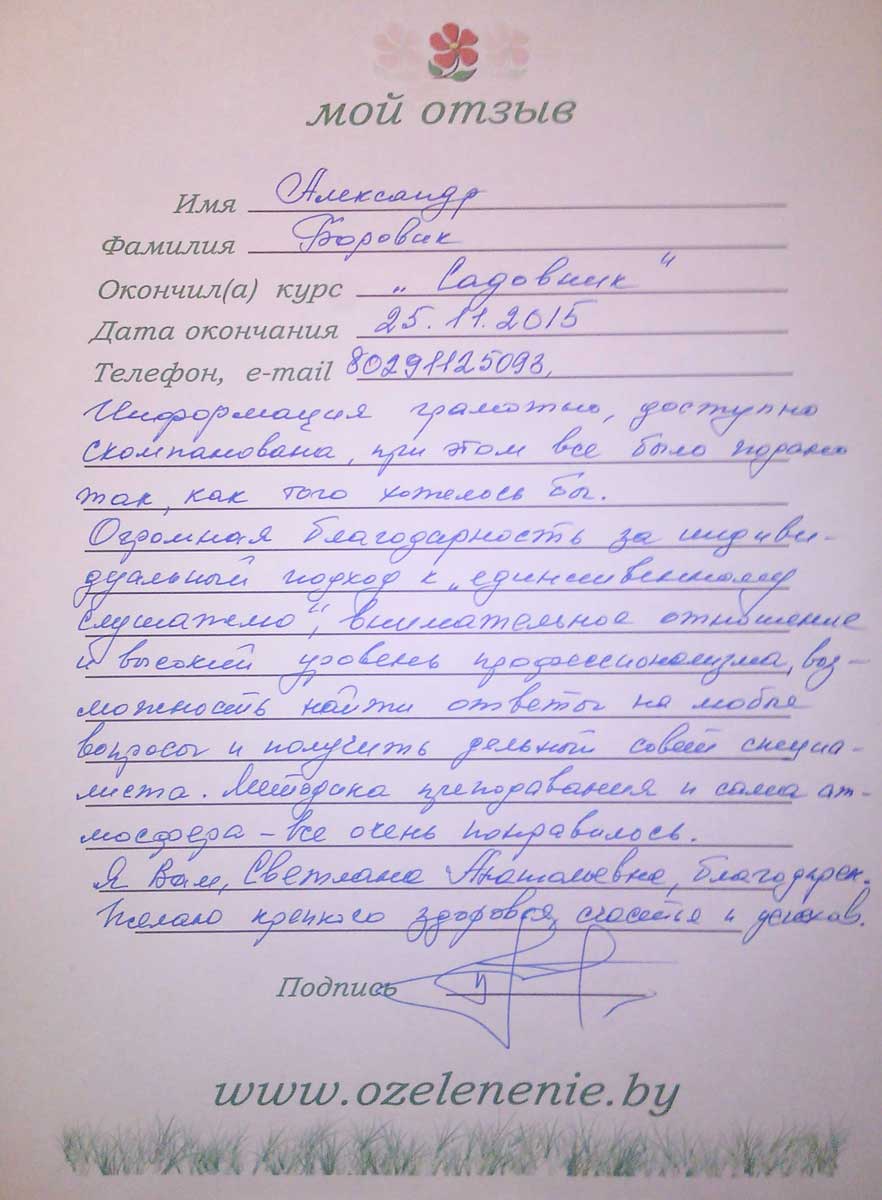 мой отзыв
Имя Александр
Фамилия Боровик
Окончил(а) курс „Садовник"
Дата окончания 25.11.2015
Телефон, e-mail 80291125093,
Информация грамотно, доступно
скомпанована, при этом все было подано
так, как того хотелось бы.
Огромная благодарность за индиви-
дуальный подход к „единственному
слушателю", внимательное отношение
и высокий уровень профессионализма, воз-
можность найти ответы на любые
вопросы и получить дельный совет специа-
листа. Методика преподавания и сама ат-
мосфера – все очень понравилось.
Я Вам, Светлана Анатольевна, благодарен.
Желаю крепкого здоровья, счастья и успехов.
Подпись
www.ozelenenie.by